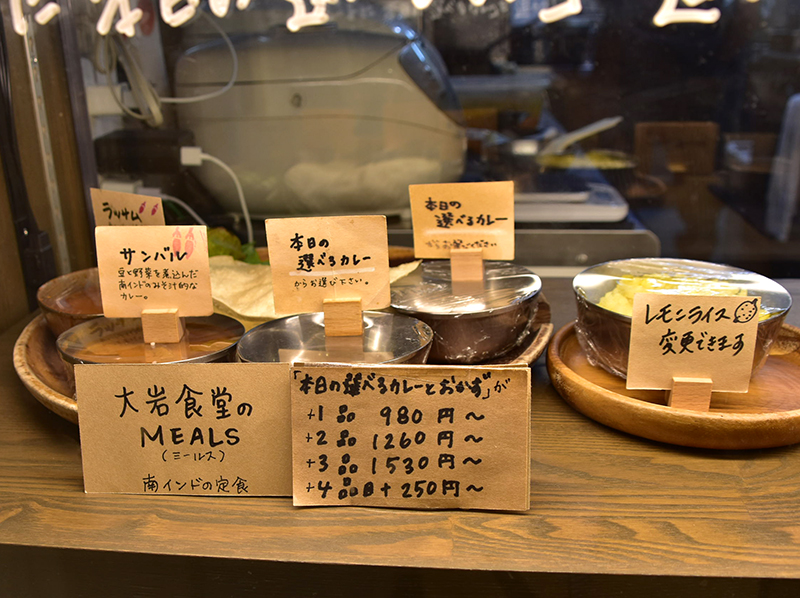 ラッサム
サンバル
豆と野菜を煮込んだ
南インドのみそ汁的な
カレー。
本日の
選べるカレー
からお選び下さい。
本日の
選べるカレー
からお選びください
レモンライス
変更できます
大岩食堂の
MEALS
(ミールス)
南インドの定食
「本日の選べるカレーとおかず」が
+1品 980円〜
+2品 1260円〜
+3品 1530円〜
+4品目+250円〜